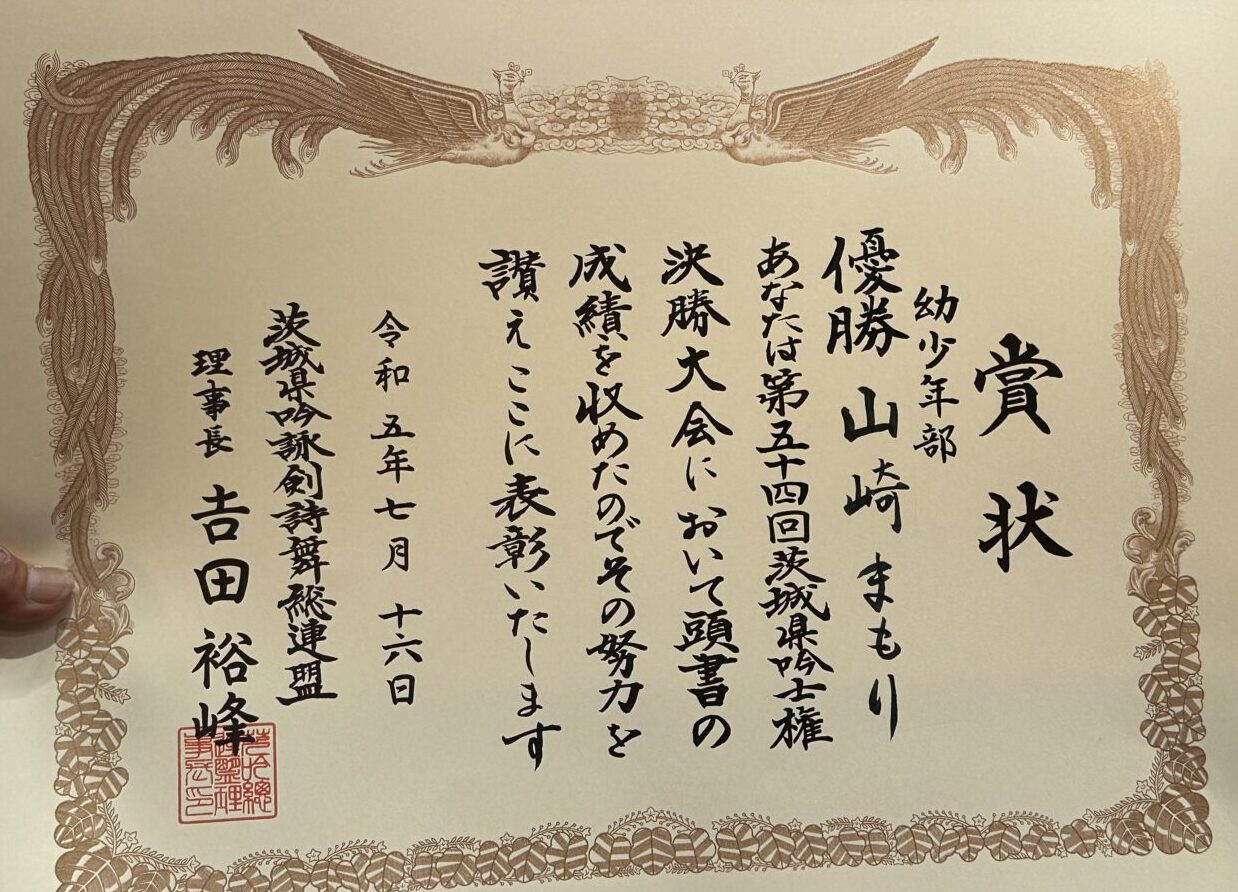 賞状
幼少年部
優勝 山崎まもり
あなたは第五十四回茨城県吟士権
決勝大会において頭書の
成績を収めたのでその努力を
讃えここに表彰いたします
令和五年七月十六日
茨城県吟詠剣詩舞総連盟
理事長 吉田裕峰